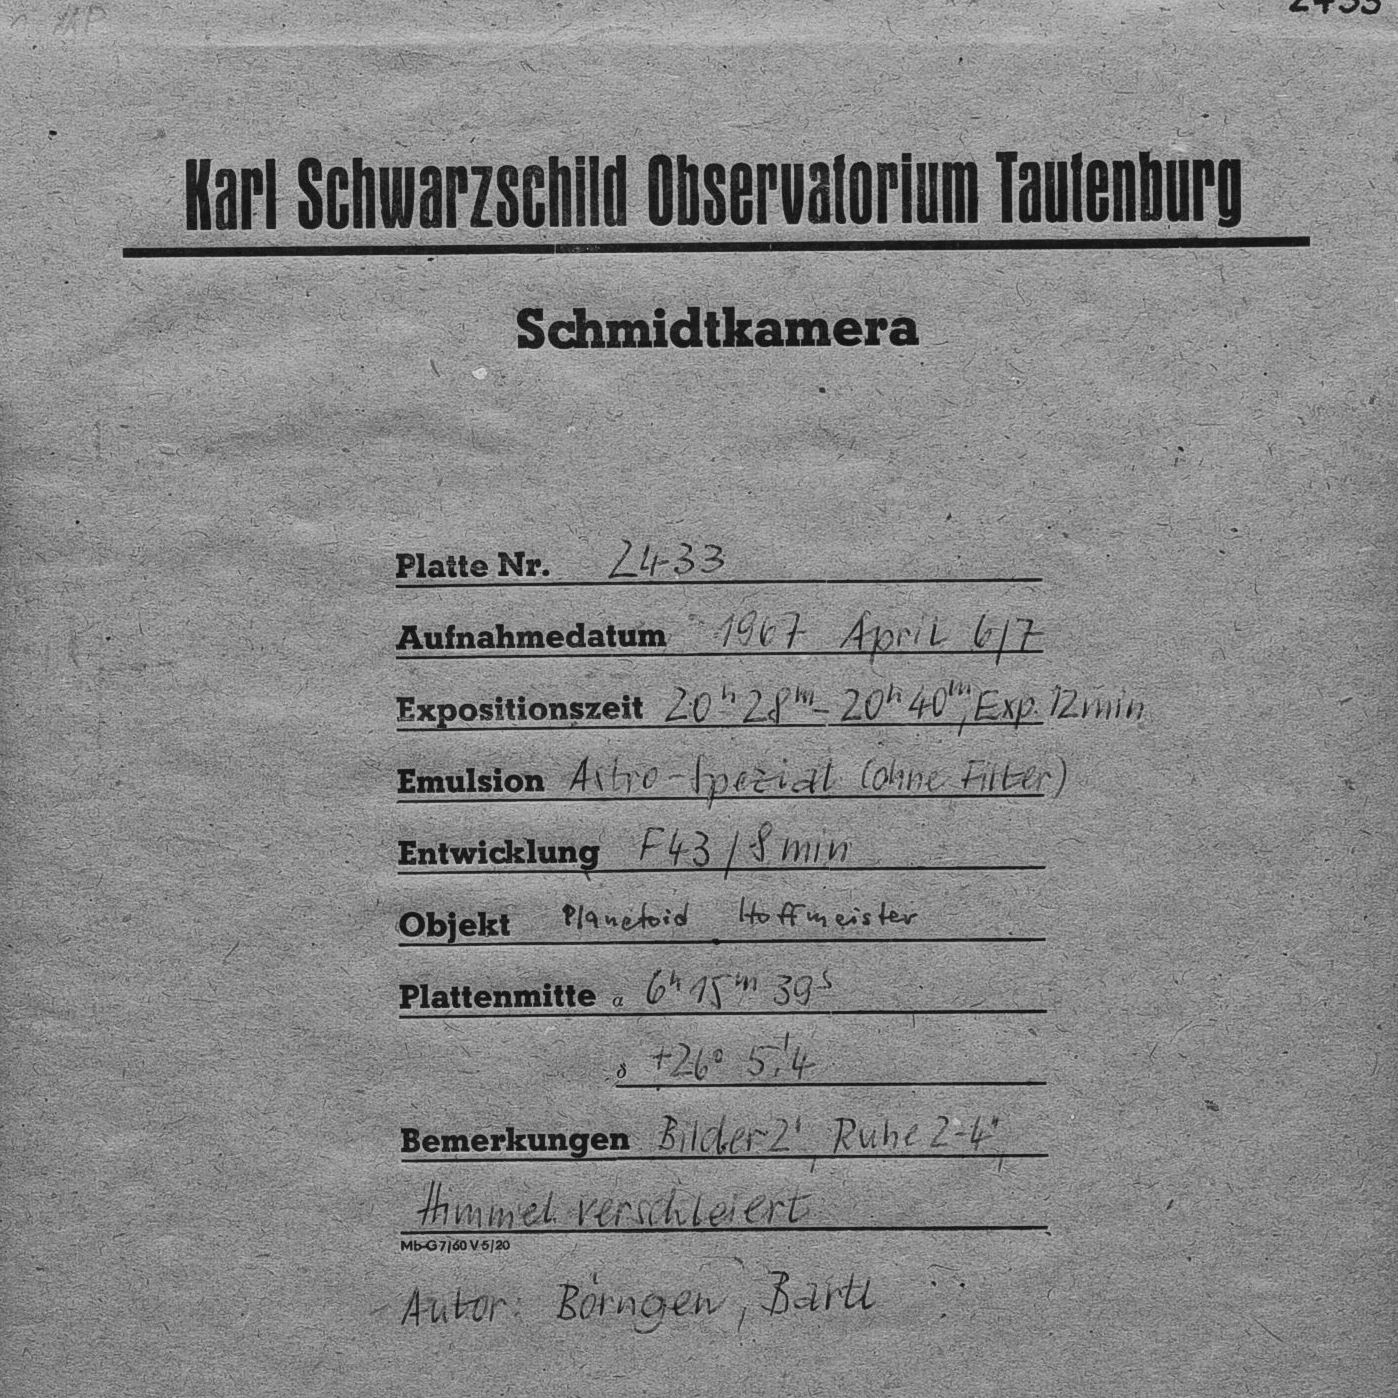 2433
Karl Schwarzschild Observatorium Tautenburg
Schmidtkamera
Platte Nr. 2433
Aufnahmedatum 1967 April 6/7
Expositionszeit 20ʰ28ᵐ-20ʰ40ᵐ, Exp. 12min
Emulsion Astro-Spezial (ohne Filter)
Entwicklung F43/8min
Objekt Planetoid Hoffmeister
Plattenmitte α 6ʰ15ᵐ39ˢ
δ +26° 5'.4
Bemerkungen Bilder 2', Ruhe 2-4",
Himmel verschleiert
Mb-G 7/60 V 5/20
Autor: Börngen, Bartl